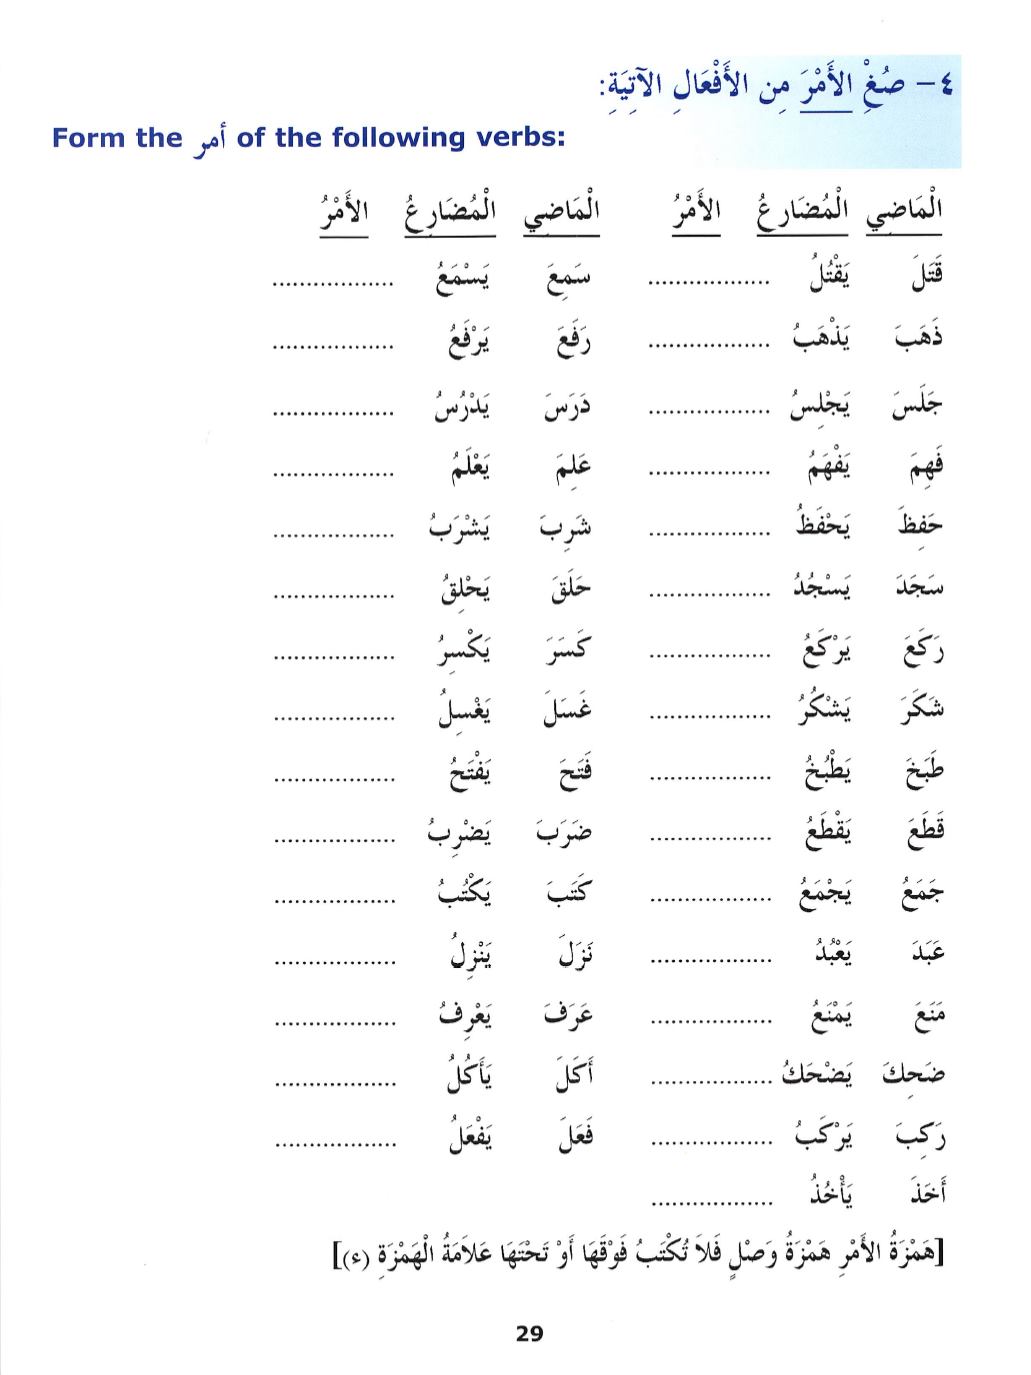 ٤- صُغْ الأَمْرَ مِن الأَفْعَالِ الآتِيَةِ:
Form the أمر of the following verbs:
الْمَاضِي الْمُضَارِعُ الأَمْرُ الْمَاضِي الْمُضَارِعُ الأَمْرُ
قَتَلَ يَقْتُلُ .................. سَمِعَ يَسْمَعُ ..................
ذَهَبَ يَذْهَبُ .................. رَفَعَ يَرْفَعُ ..................
جَلَسَ يَجْلِسُ .................. دَرَسَ يَدْرُسُ ..................
فَهِمَ يَفْهَمُ .................. عَلِمَ يَعْلَمُ ..................
حَفِظَ يَحْفَظُ .................. شَرِبَ يَشْرَبُ ..................
سَجَدَ يَسْجُدُ .................. حَلَقَ يَحْلِقُ ..................
رَكَعَ يَرْكَعُ .................. كَسَرَ يَكْسِرُ ..................
شَكَرَ يَشْكُرُ .................. غَسَلَ يَغْسِلُ ..................
طَبَخَ يَطْبُخُ .................. فَتَحَ يَفْتَحُ ..................
قَطَعَ يَقْطَعُ .................. ضَرَبَ يَضْرِبُ ..................
جَمَعُ يَجْمَعُ .................. كَتَبَ يَكْتُبُ ..................
عَبَدَ يَعْبُدُ .................. نَزَلَ يَنْزِلُ ..................
مَنَعَ يَمْنَعُ .................. عَرَفَ يَعْرِفُ ..................
ضَحِكَ يَضْحَكُ .................. أَكَلَ يَأكُلُ ..................
رَكِبَ يَرْكَبُ .................. فَعَلَ يَفْعَلُ ..................
أَخَذَ يَأْخُذُ ..................
[هَمْزَةُ الأَمْرِ هَمْزَةُ وَصْلٍ فَلاَ تُكْتَبُ فَوْقَهَا أَوْ تَحْتَهَا عَلاَمَةُ الْهَمْزَةِ (ء)]
29